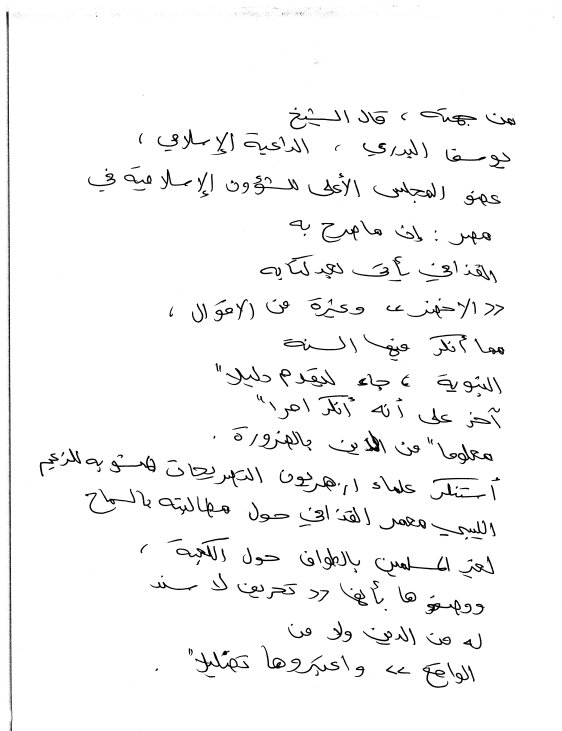 من جهته ، قال الشيخ
يوسف البدري ، الداعية الإسلامي ،
عضو المجلس الأعلى للشؤون الإسلامية في
مصر : إن ماصرح به
القذافي يأتي بعد كتابه
<< الاخضر >> وغيره من الاقوال ،
مما أنكر فيها السنة
النبوية ، جاء ليقدم دليلا"
آخر على أنه أنكر امرا"
معلوما" من الدين بالضرورة .
أستنكر علماء ازهريون التصريحات منسوبه للزعيم
الليبي معمر القذافي حول مطالبته بالسماح
لغير المسلمين بالطواف حول الكعبة ،
ووصفوها بأنها << تخريف لا سند
له من الدين ولا من
الواقع >> واعتبروها تضليلا" .